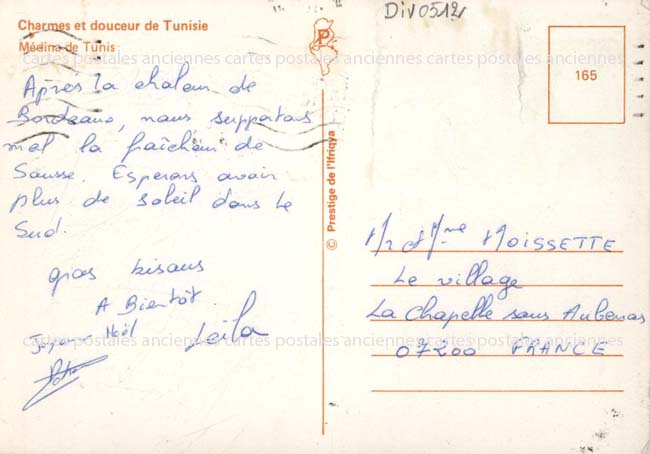 Charmes et douceur de Tunisie
Médina de Tunis
Après la chaleur de
Bordeaux, nous supportons
mal la fraîcheur de
Sousse. Esperons avoir
plus de soleil dans le
Sud.
gros bisous
A Bientôt.
Joyeux Noël
Leila
P
© Prestige de l'Ifriqya
Div0512
165
Mr et Mme MOISSETTE
Le village
La Chapelle sous Aubenas
07200 FRANCE
cartes postales anciennes cartes postales anciennes cartes postales anciennes
cartes postales anciennes cartes postales anciennes cartes postales anciennes